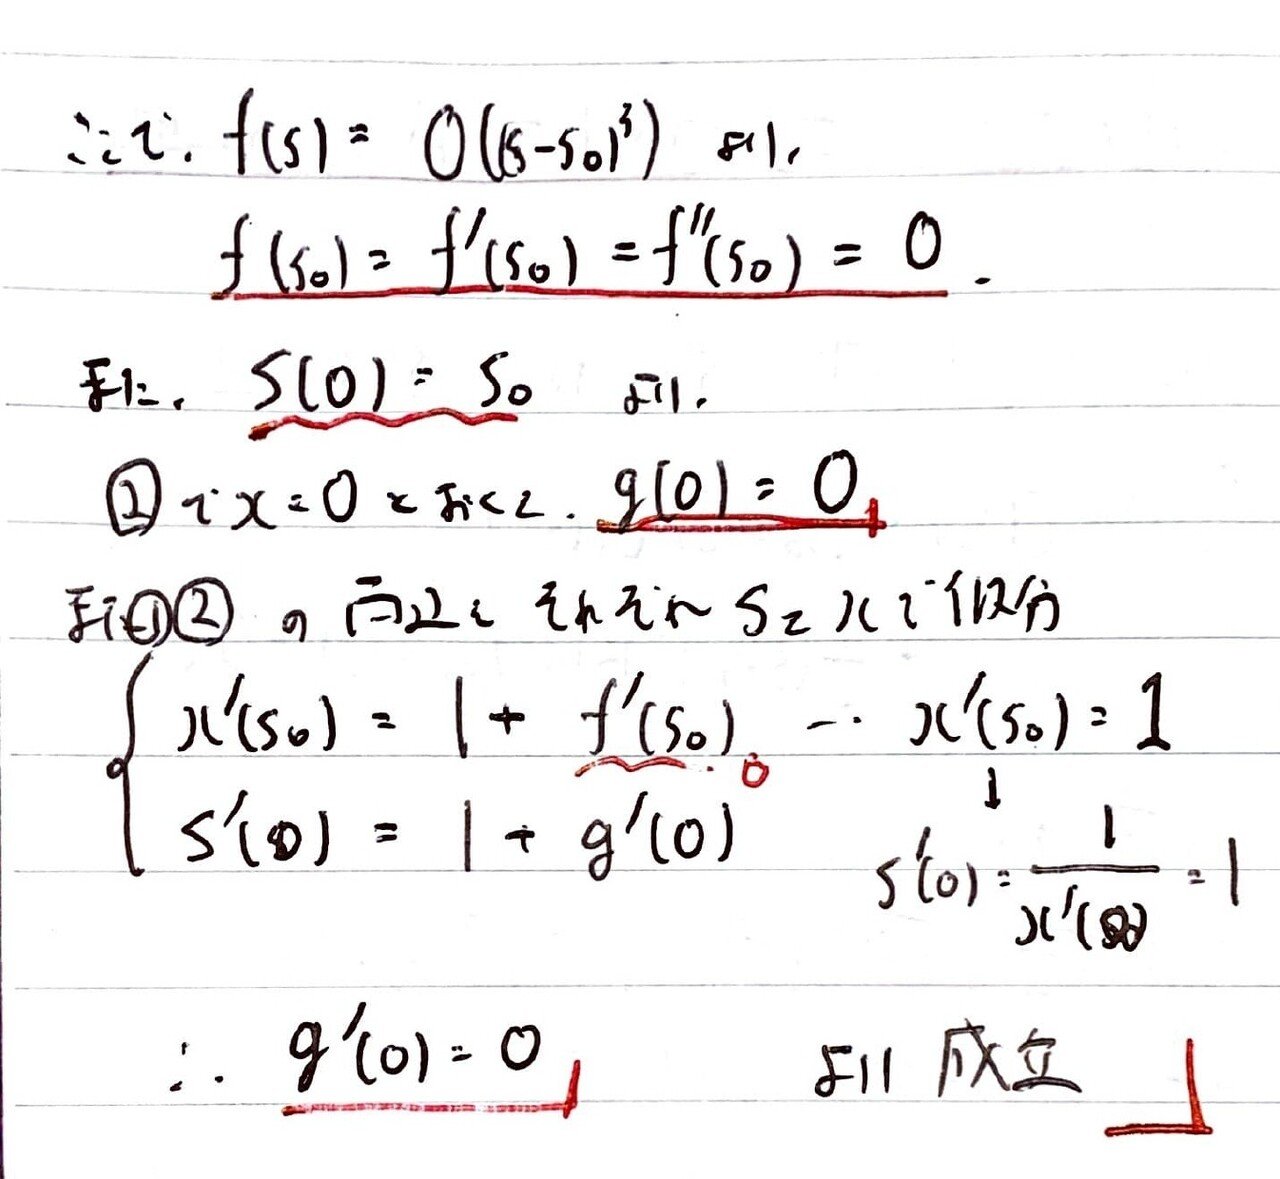 ここで、f(s) = O((s-s₀)³) より、
f(s₀) = f'(s₀) = f''(s₀) = 0.
また、S(0) = S₀ より、
②でx=0とおくと、g(0) = 0
また①②の両辺をそれぞれSとxで微分
x'(s₀) = 1 + f'(s₀) 0 … x'(s₀) = 1
↓
S'(0) = 1 + g'(0)
S'(0) = 1/x'(s₀) = 1
∴ g'(0) = 0 より成立